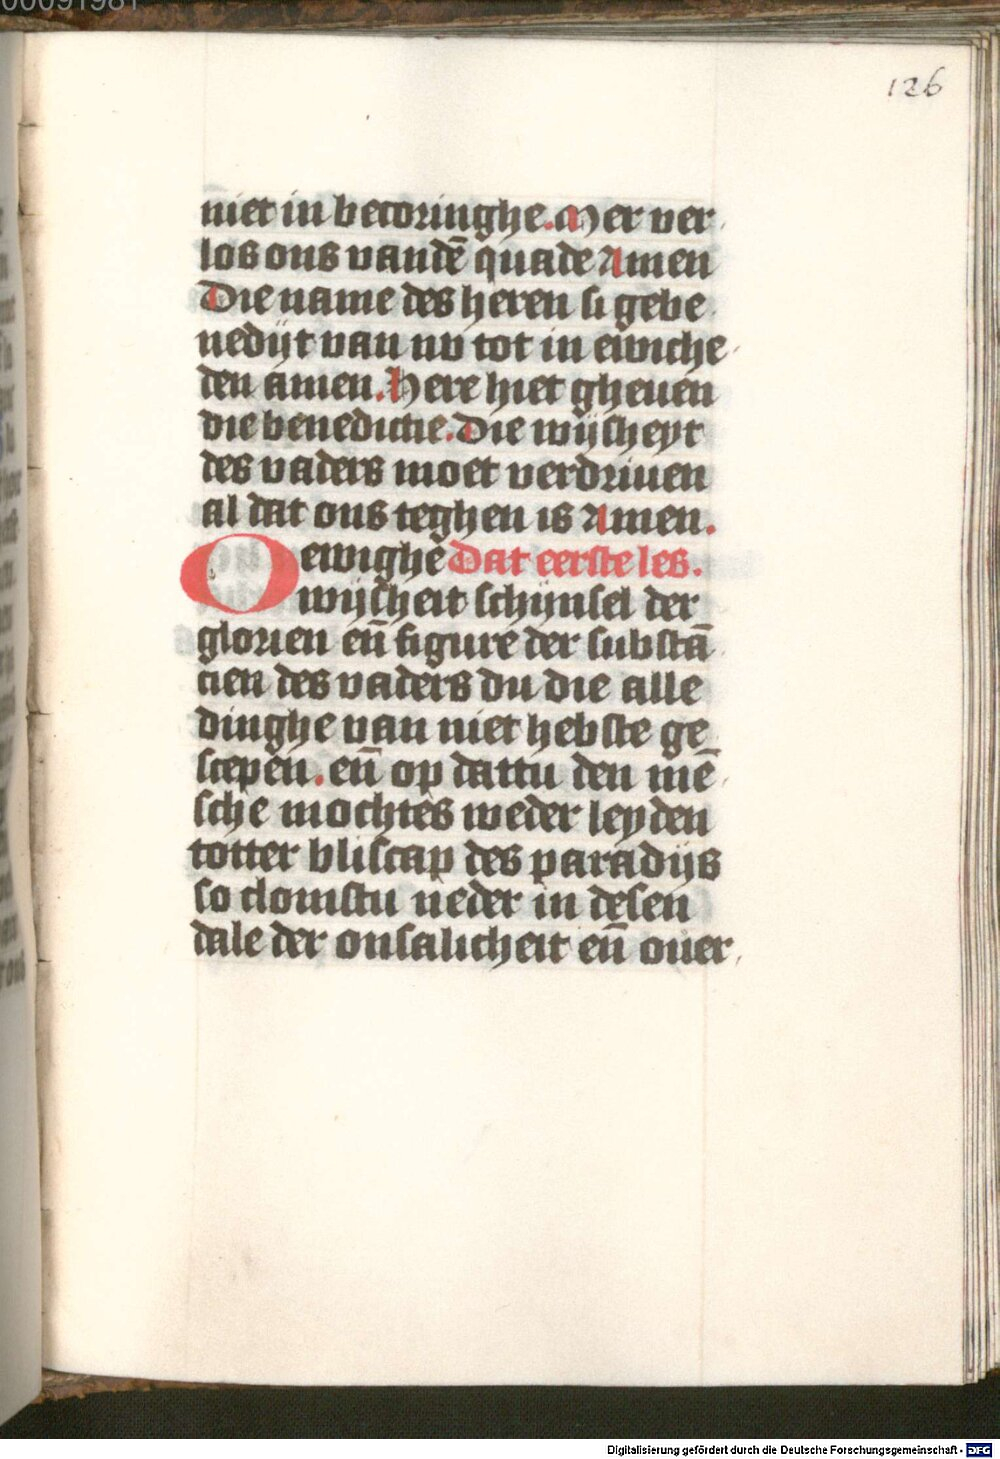 126
niet in becoringhe. Mer ver
los ons vandē quade Amen
Die name des heren si gebe
nedijt van nv tot in ewiche
den amen. Here hiet gheuen
die benedictie. Die wijsheyt
des vaders moet verdriuen
al dat ons teghen is Amen.
O ewighe Dat eerste les.
wijsheit schijnsel der
glorien eñ figure der substā
cien des vaders du die alle
dinghe van niet hebste ge
scepen. eñ op dattu den mē
sche mochtes weder leyden
totter bliscap des paradijs
so clomstu neder in desen
dale der onsalicheit eñ ouer
Digitalisierung gefördert durch die Deutsche Forschungsgemeinschaft - DFG